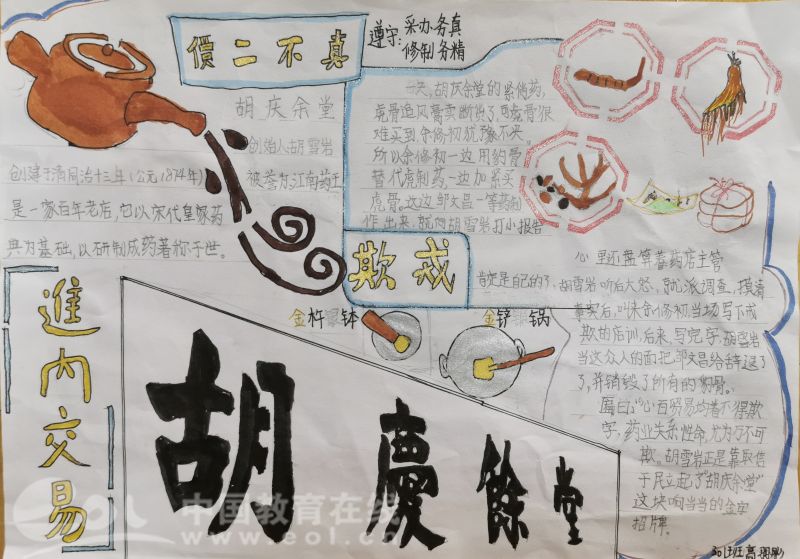 價二不真
遵守:采办务真
修制务精
胡庆余堂
创始人胡雪岩
创建于清同治十三年(公元1874年)
被誉为江南药王
是一家百年老店,它以宋代皇家药
典为基础,以研制成药著称于世。
一天,胡庆余堂的紧俏药,
虎骨追风膏卖断货了,可虎骨很
难买到余修初犹豫不决。
所以余修初一边用豹骨
替代虎制药,一边加紧买
虎骨。
作出来,就向胡雪岩打小报告
心里还盘算着药店主管
肯定是自己的了,胡雪岩听后大怒,就派调查,摸着
事实后,叫余修初当场写下戒
欺的店训,后来,写完字,胡雪岩
当这众人的面把邹文昌给辞退了
了,并销毁了所有的豹骨。
匾曰:“凡百贸易均着不得欺
字,药业关系性命,尤为万不可
欺。胡雪岩正是靠取信
于民立起了“胡庆余堂”
这块响当当的金字
招牌。
欺戒
金杵银钵
金铲银锅
進内交易
胡慶餘堂
中国教育在线
www.eol.cn